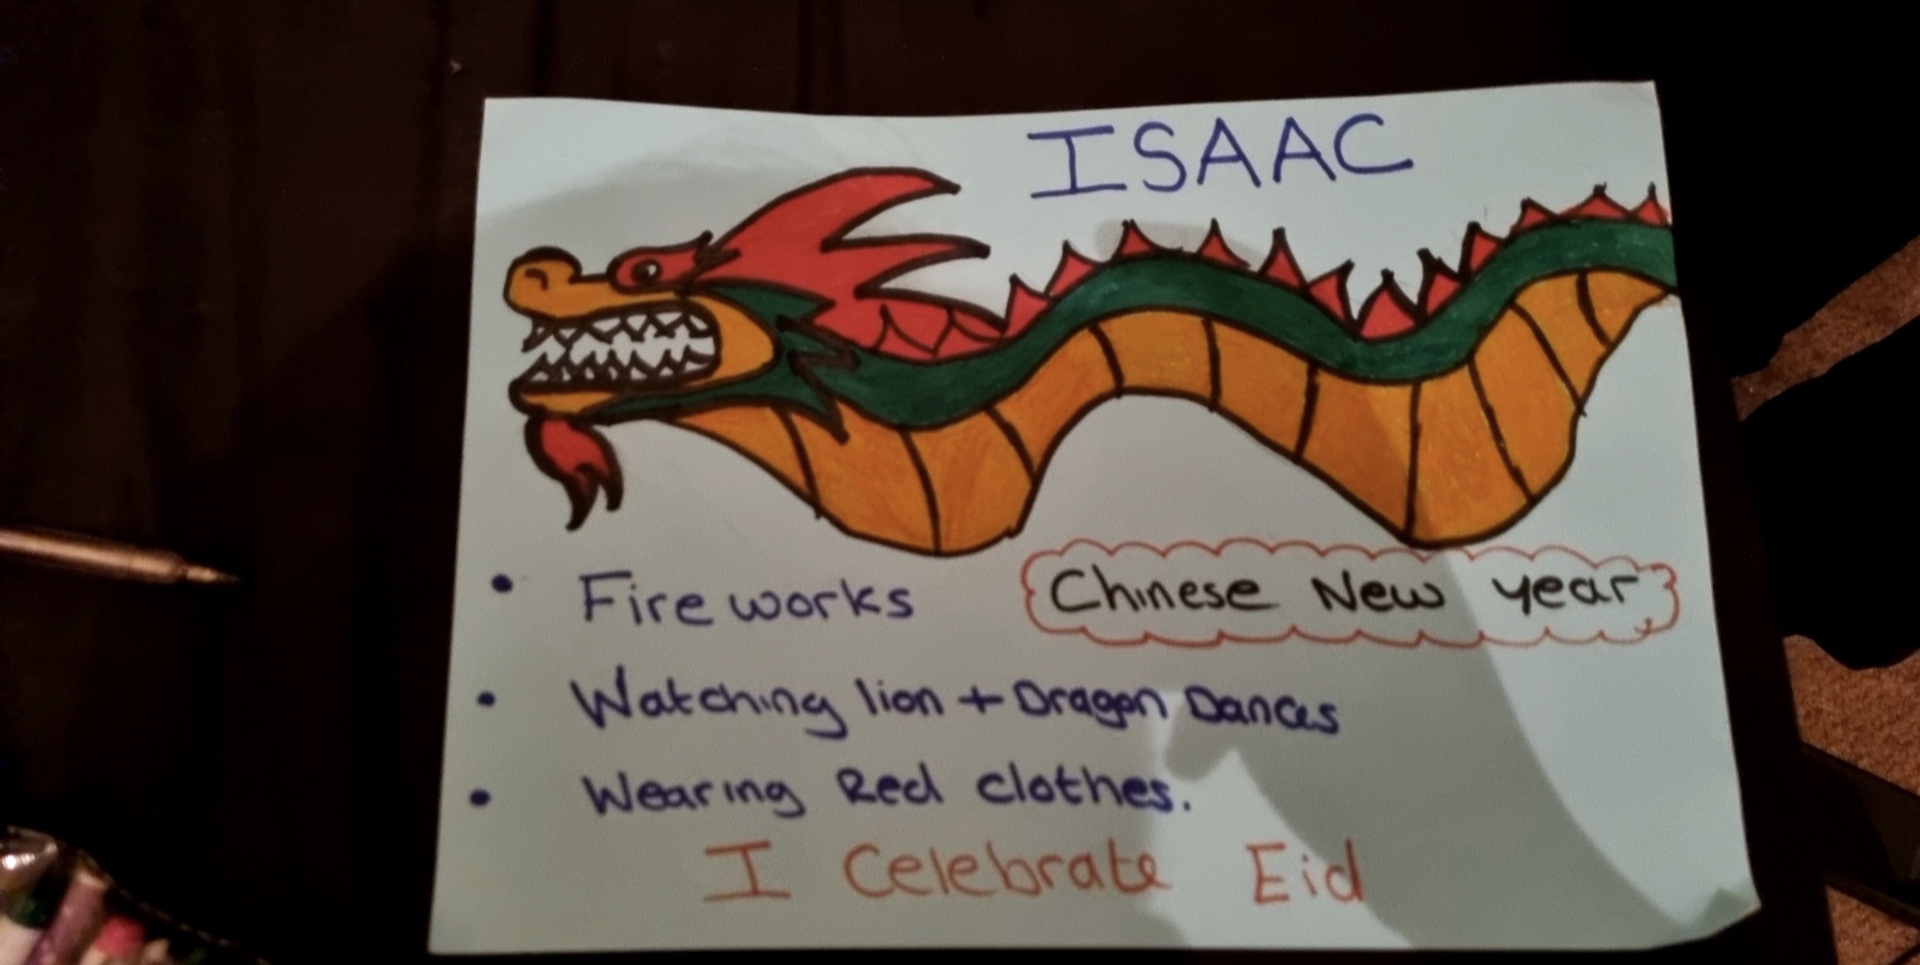 ISAAC
• Fireworks
Chinese New year
• Watching lion + Dragon Dances
• Wearing Red clothes.
I Celebrate Eid